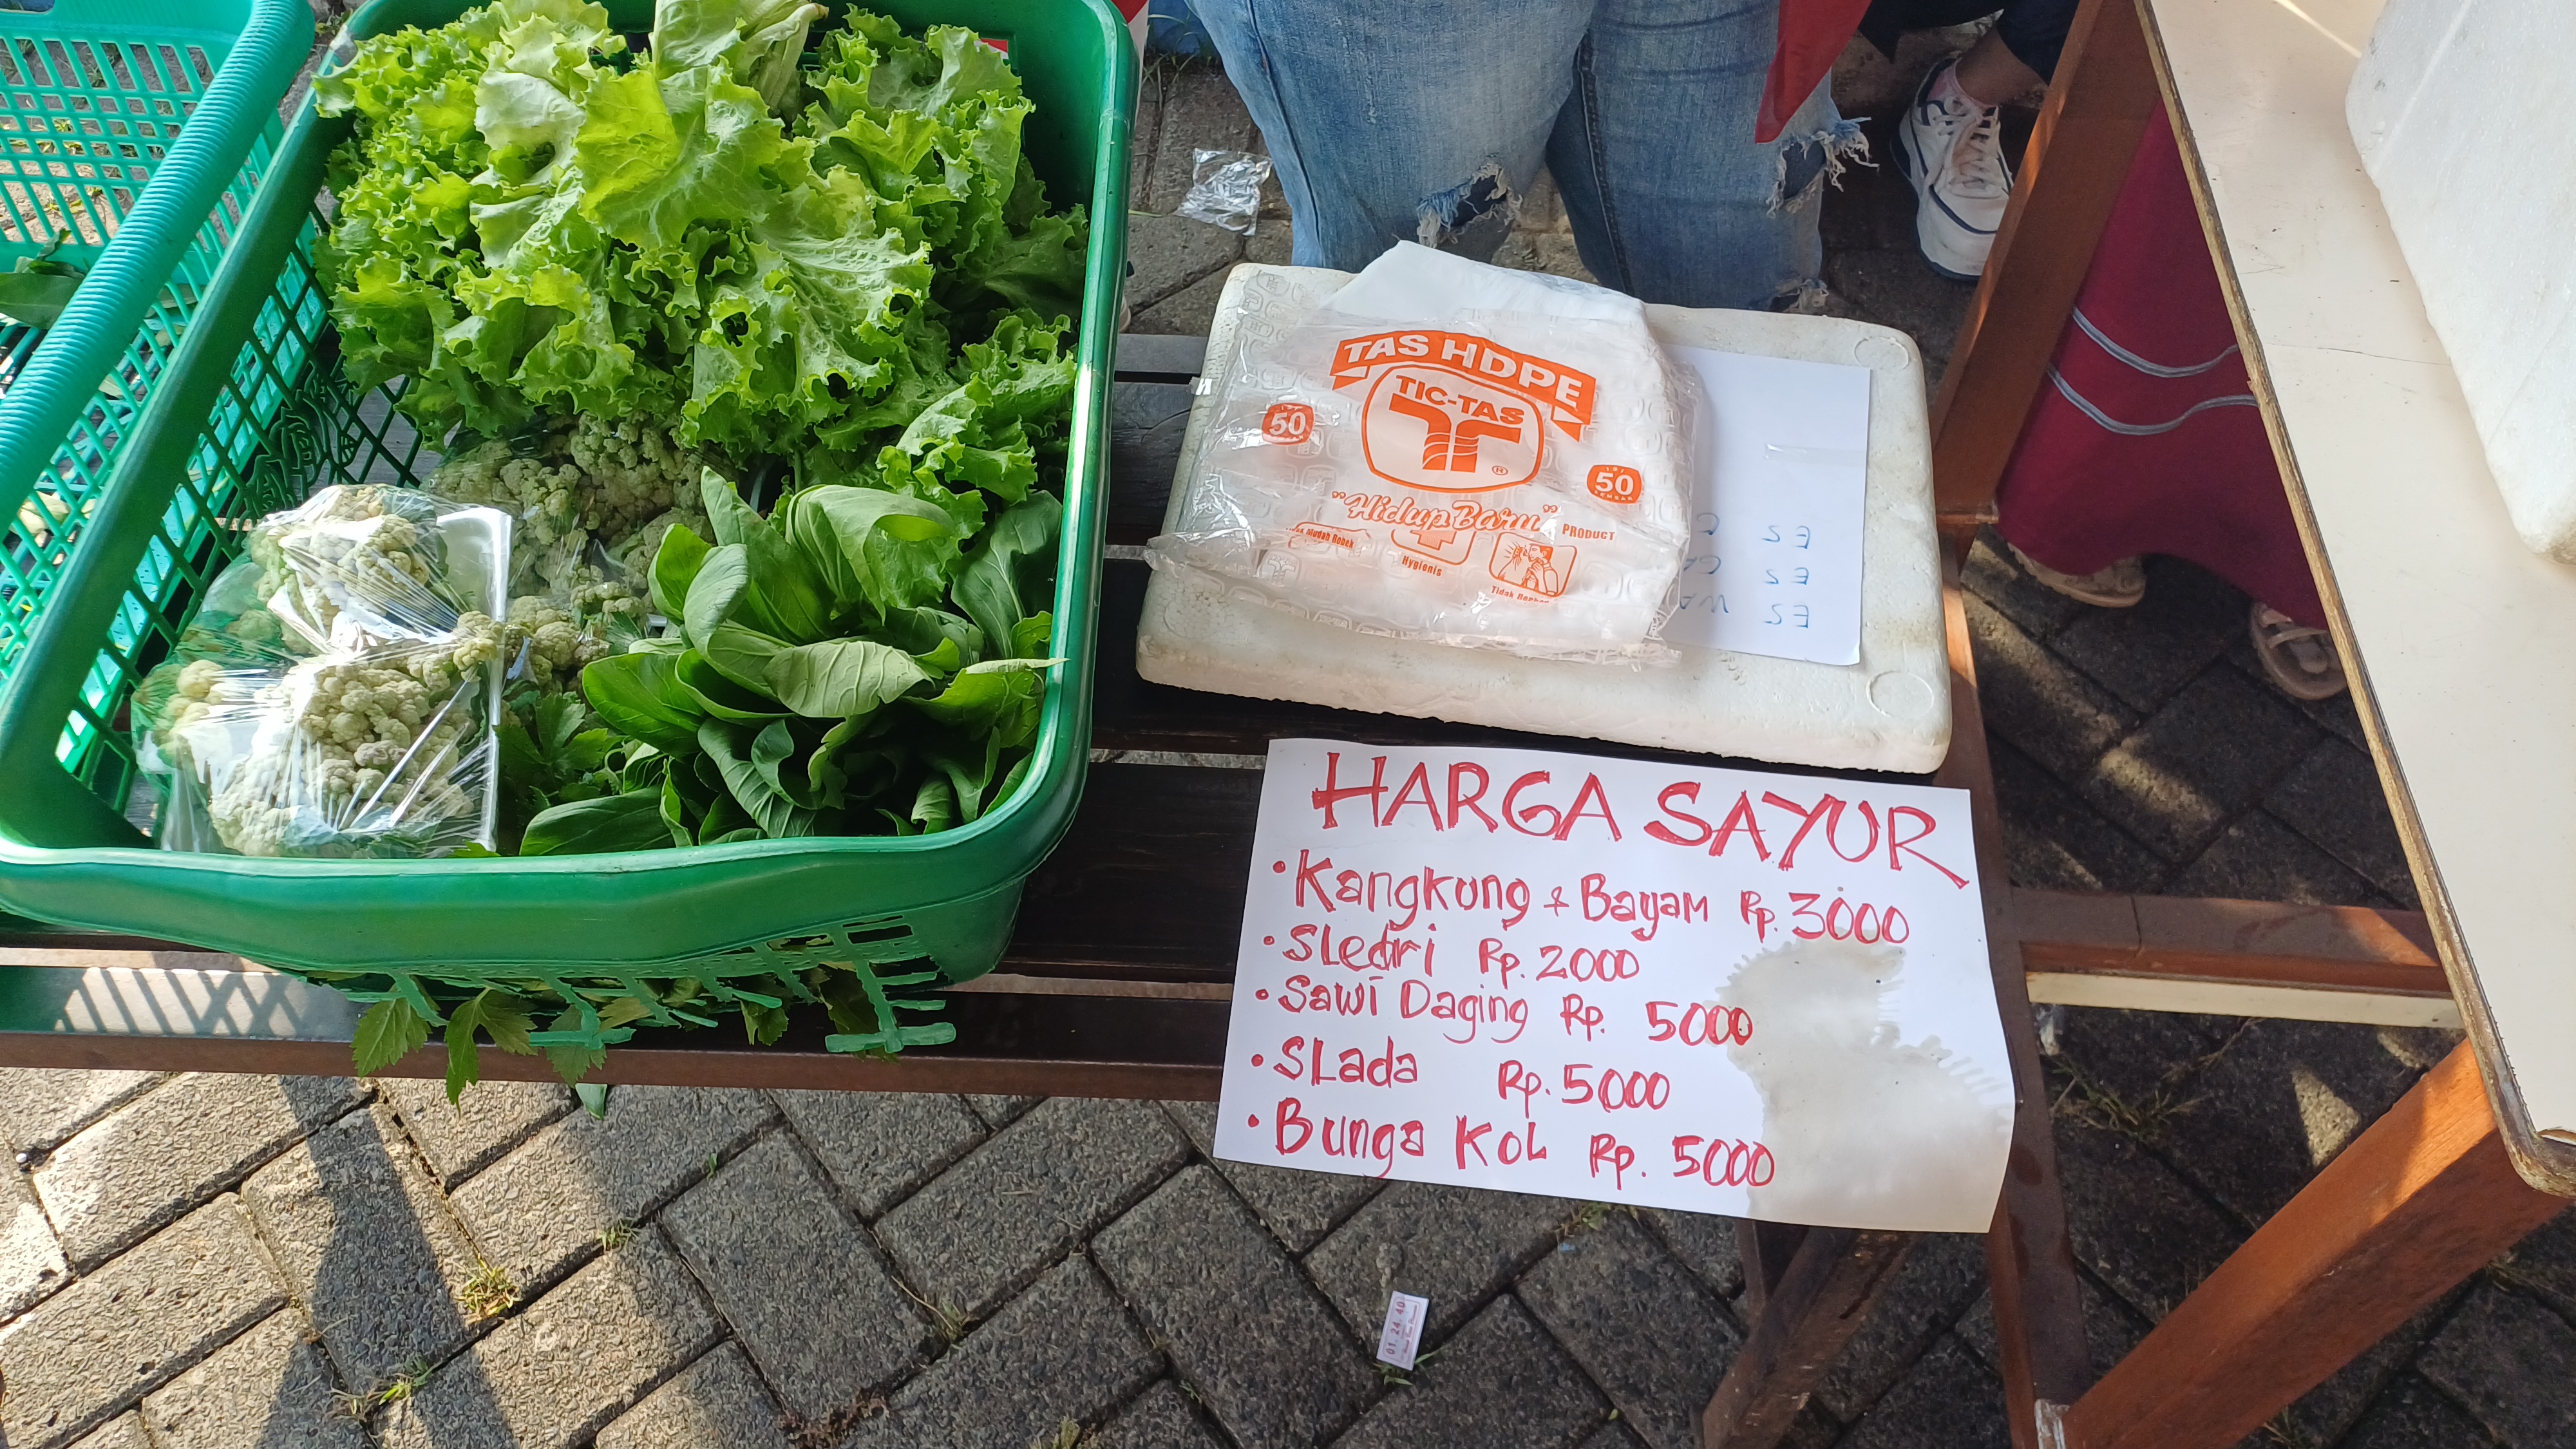 TAS HDPE
TIC-TAS
ISI 50 LEMBAR
50
"Hidup Baru" PRODUCT
Mudah Robek
Hygienis
Tidak
ES
ES
ES
HARGA SAYUR
• Kangkung + Bayam Rp. 3000
• Sledri Rp. 2000
• Sawi Daging Rp. 5000
• Slada Rp. 5000
• Bunga Kol Rp. 5000
01.24.40